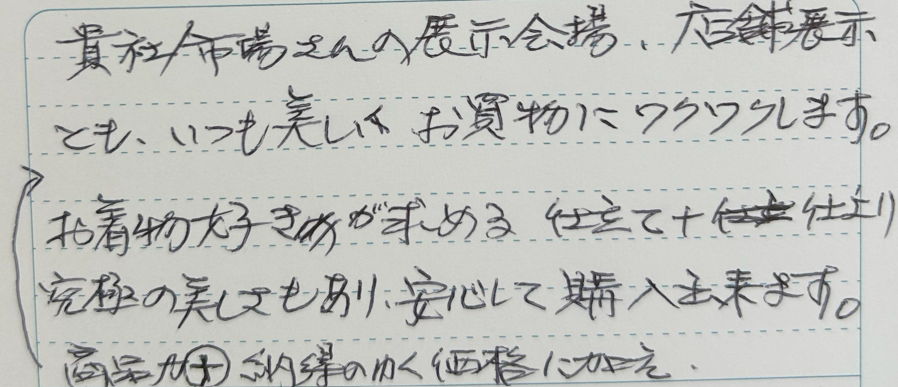 貴社/市場さんの展示会場、店舗展示
とも、いつも美しく お買物にワクワクします。
お着物大好きが求める 仕立て+ 仕上り
究極の美しさもあり、安心して購入出来ます。
商品力⊕納得のゆく価格に加え、